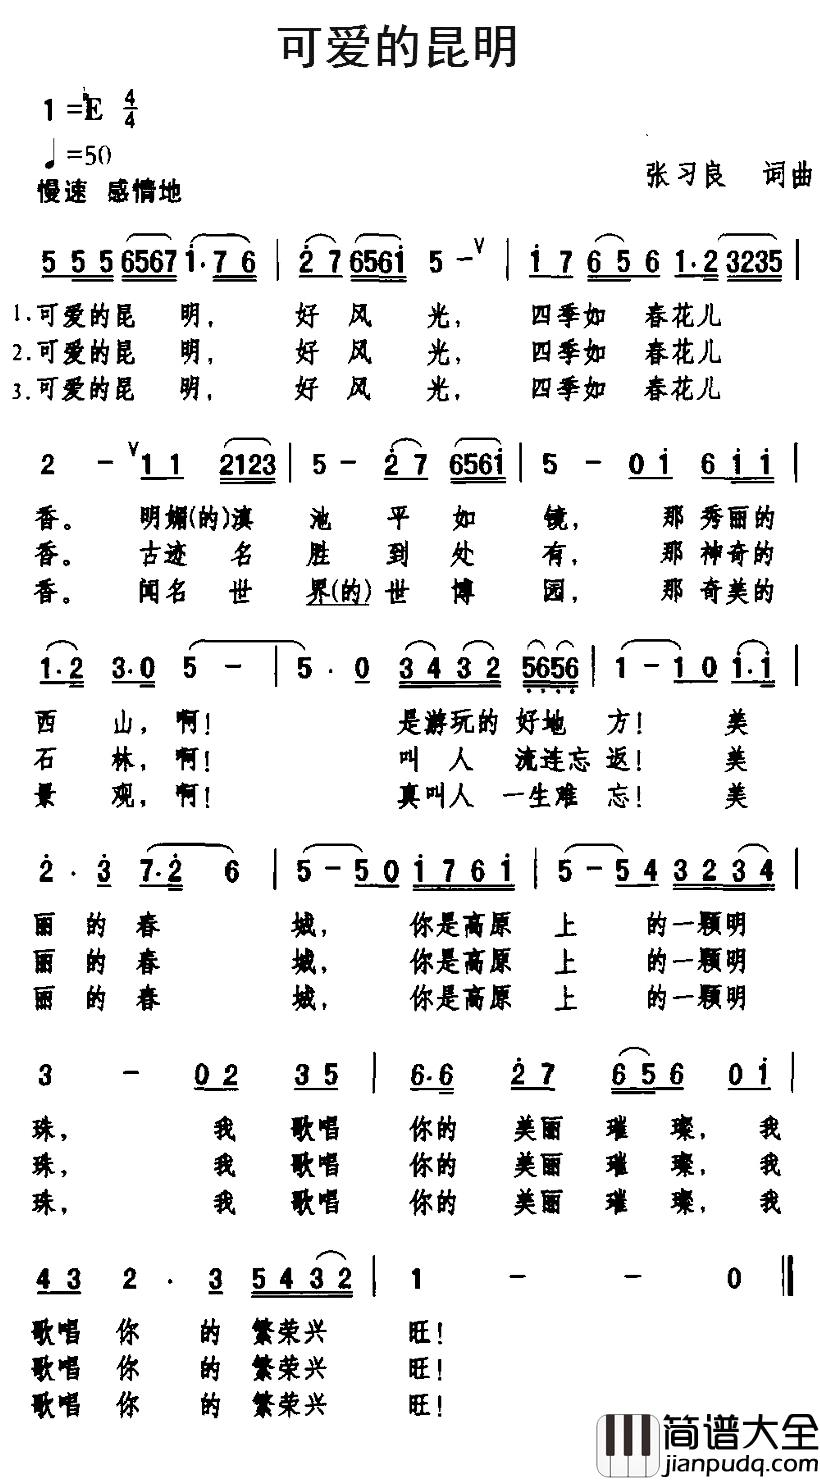 可爱的昆明
1=E 4/4
♩=50
慢速 感情地
张习良 词曲
5 5 5 6567 1·7 6 | 2 7 6561 5 - ∨ | 1 7 6 5 6 1·2 3235 |
1.可爱的昆 明, 好 风 光, 四季如 春花儿
2.可爱的昆 明, 好 风 光, 四季如 春花儿
3.可爱的昆 明, 好 风 光, 四季如 春花儿
2 - ∨ 1 1 2123 | 5 - 2 7 6561 | 5 - 0 1 6 1 1 |
香。 明媚(的)滇 池 平 如 镜, 那 秀丽的
香。 古迹 名 胜 到 处 有, 那 神奇的
香。 闻名 世 界(的)世 博 园, 那 奇美的
1·2 3·0 5 - | 5 · 0 3 4 3 2 5656 | 1 - 1 0 1·1 |
西 山, 啊! 是游玩的 好地 方! 美
石 林, 啊! 叫 人 流连忘 返! 美
景 观, 啊! 真叫人 一生难 忘! 美
2 · 3 7·2 6 | 5 - 5 0 1 7 6 1 | 5 - 5 4 3 2 3 4 |
丽 的 春 城, 你是高原 上 的一颗明
丽 的 春 城, 你是高原 上 的一颗明
丽 的 春 城, 你是高原 上 的一颗明
3 - 0 2 3 5 | 6·6 2 7 6 5 6 0 1 |
珠, 我 歌唱 你的 美丽 璀 璨, 我
珠, 我 歌唱 你的 美丽 璀 璨, 我
珠, 我 歌唱 你的 美丽 璀 璨, 我
4 3 2 · 3 5 4 3 2 | 1 - - 0 ‖
歌唱 你 的 繁荣兴 旺!
歌唱 你 的 繁荣兴 旺!
歌唱 你 的 繁荣兴 旺!
简谱大全
jianpudq.com